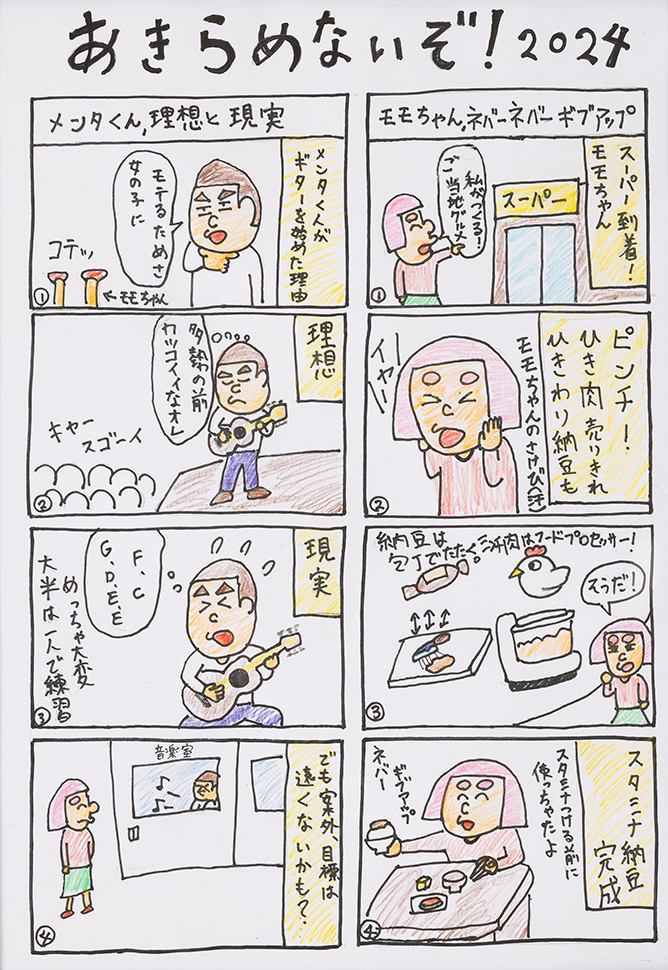 あきらめないぞ!2024
モモちゃん,ネバーネバーギブアップ
スーパー到着!
モモちゃん
スーパー
私がつくる!
ご当地グルメ
①
ピンチ!
ひき肉売りきれ
ひきわり納豆も
モモちゃんのさけび(汗)
イヤー
②
納豆は
包丁でたたく。ミンチ肉はフードプロセッサー!
そうだ!
③
スタミナ納豆
完成
スタミナつける前に
使っちゃたよ
ギブアップ
ネバー
④
メンタくん,理想と現実
メンタくんが
ギターを始めた理由
モテるためさ
女の子に
コテッ
←モモちゃん
①
理想
多勢の前
カッコイイなオレ
キャー
スゴーイ
②
現実
F、C
G、D、E、E
めっちゃ大変
大半は一人で練習
③
でも案外、目標は
遠くないかも?
音楽室
④